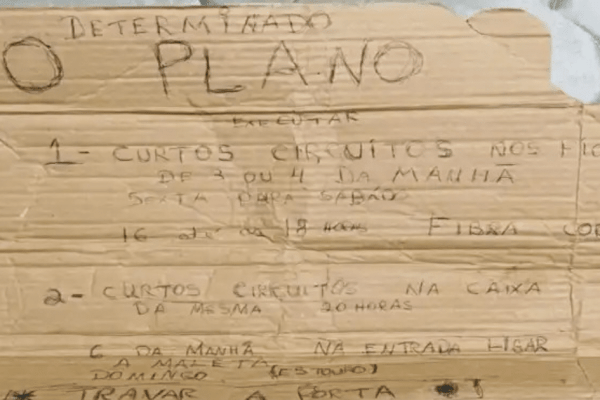 DETERMINADO
O PLANO
EXECUTAR
1- CURTOS CIRCUITOS NOS FIO
DE 3 OU 4 DA MANHÃ
SEXTA PARA SABADO
16 até as 18 HORAS FIBRA CO
2- CURTOS CIRCUITOS NA CAIXA
DA MESMA 20 HORAS
6 DA MANHÃ NA ENTRADA LIGAR
A MALETA
DOMINGO (ESTOURO)
TRAVAR A PORTA